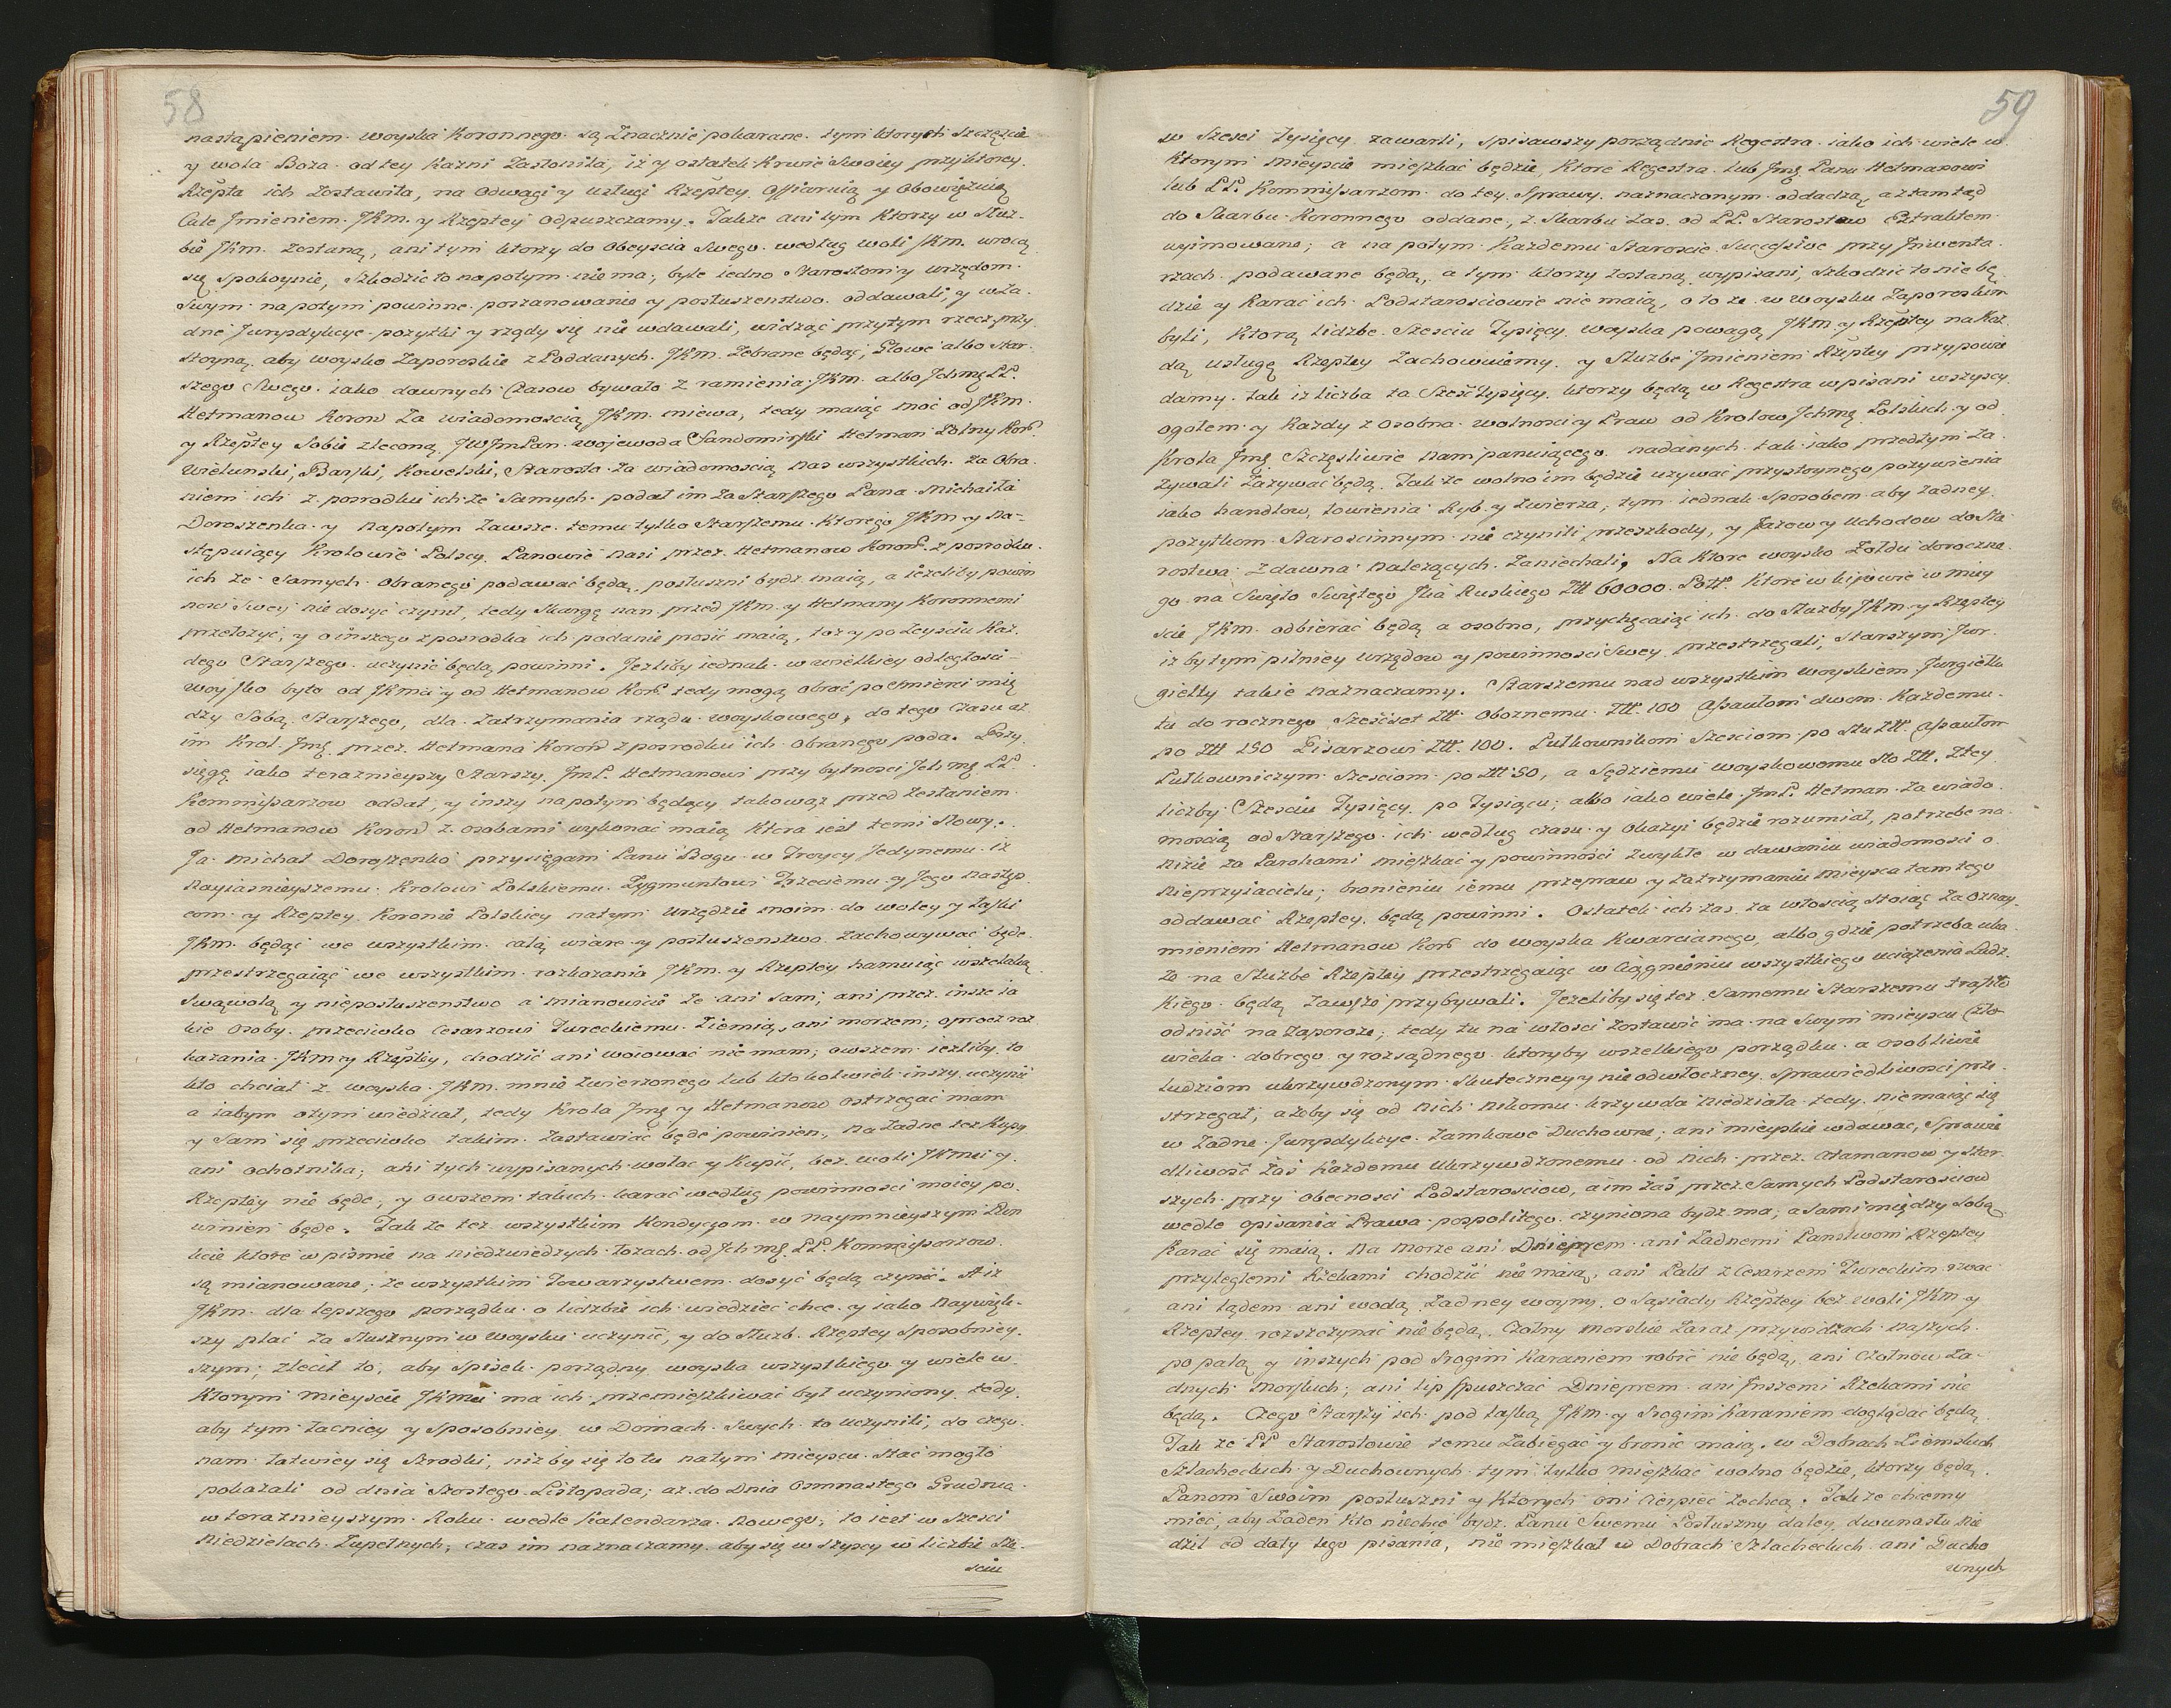 58
nastąpieniem woyska Koronnego są Znacznie pokarane tym ktorych szczęscie
y wola Boza od tey Kazni Zasłoniła, iz y ostatek Krwie Swoiey przy ktorey
Rzepta ich Zostawiła, na Odwagi y usługi Rzeptey Offiaruią y Obowięzuią
Cale Jmieniem JKm. y Rzeptey Odpuszczamy. Takze ani tym Ktorzy w Słuz-
bie JKm. Zostaną, ani tym ktorzy do Obeyscia Swego według woli JKm. wrocą
się Spokoynie, Szkodzic to napotym nie ma; byle iedno Starostom y urzędom
Swym napotym powinne poszanowanie y posłuszenstwo oddawali, y w Za-
dne Jurysdykcye pozytki y rządy się nie wdawali, widząc przytym rzecz przy
stoyną, aby woysko Zaporoskie z Poddanych JKm. Zebrane będąc, Głowe albo Star-
szego Swego iako dawnych Czasow bywało z ramienia JKm. albo Jchmę PP.
Hetmanow Koron Za wiadomoscią JKm. miewa, tedy maiąc moc od JKm.
y Rzeptey Sobie zleconą JWJmPan Wojewoda Sandomirski Hetman Polny Kor.
Wielunski, Barski, Kowelski, Starosta Za wiadomoscią nas wszystkich za Obra-
niem ich z posrodku ich ze Samych podał im za Starszego Pana Michaiła
Doroszenka y napotym Zawsze temu tylko Starszemu Ktorego JKm y na-
stępuiący Krolowie Polscy Panowie nasi przez Hetmanow Koron. z posrodku
ich ze Samych Obranego podawać będą, posłuszni bydz maią, a ieżeliby powin
nosci Swey nie dosyć czynił, tedy Skargę nan przed JKm. y Hetmany Koronnemi
przełozyć, y o inszego z posrodka ich podanie prosić maią, toz y po Zeysciu Kaz-
dego Starszego uczynić będą powinni. Jezliby iednak w wielkiey odległosci
woysko było od JKmci y od Hetmanow Kor. tedy mogą obrać po smierci mię
dzy Sobą Starszego, dla Zatrzymania rządu woyskowego, do tego Czasu az
im Krol Jmę przez Hetmana Koron z posrodku ich Obranego poda. Przy
sięgę iako teraznieyszy Starszy JmP. Hetmanowi przy bytnosci Jchmę PP.
Kommissarzow oddał, y inszy napotym będący takowąz przed Zostaniem
od Hetmanow Koron z osobami wykonać maią Ktora iest temi Słowy.
Ja Michał Doroszenko przysięgam Panu Bogu w Troycy Jedynemu iz
Nayiasnieyszemu Krolowi Polskiemu Zygmuntowi Trzeciemu y Jego Następ
com y Rzeptey Koronie Polskiey natym Urzędzie moim do woley y łaski
JKm. będąc we wszystkim całą wiare y posłuszenstwo Zachowywać będe
przestrzegaiąc we wszystkim rozkazania JKm. y Rzeptey hamuiąc wszelaką
Swąwolą y nieposłuszenstwo a mianowicie ze ani sam, ani przez insze ia
kie osoby przeciwko Cesarzowi Tureckiemu Ziemią, ani morzem; oprocz roz
kazania JKm y Rzeptey, chodzić ani woiować nie mam; owszem iezliby to
kto chciał z woyska JKm. mnie Zwierzonego lub ktokolwiek inszy uczynić
a iabym o tym wiedział, tedy Krola Jmę y Hetmanow Ostrzegać mam
y Sam się przeciwko takim Zastawiać będe powinien, na Zadne tez Kupy
ani ochotnika, ani tych wypisanych wołac y Kupić, bez woli JKmci y
Rzeptey nie będe, y owszem takich karać według powinnosci moiey po-
winien będe. Tak ze tez wszystkim Kondycyom w naymnieyszym Pun
kcie ktore w pismie na niedzwiedzych łozach od Jchmę PP. Kommissarzow
są mianowane, ze wszystkim Towarzystwem dosyć będą czynić. A iz
JKm. dla lepszego porządku o liczbie ich wiedzieć chce y iako naywięk-
szy płac Za Słusznym w Woysku uczynić, y do Służb Rzeptey Sposobniey-
szym; zlecił to, aby Spisek porządny woyska wszystkiego y wiele w
Ktorym mieyscu JKmci ma ich przemieszkiwać był uczyniony tedy
aby tym łacniey y Sposobniey w Domach Swych to uczynili, do czego
nam łatwiey się Srodki, niz by się to tu natym mieyscu stać mogło
pokazali od dnia Szostego Listopada; az do Dnia Osmnastego Grudnia
w teraznieyszym Roku wedle Kalendarza Nowego, to iest w Szesci
Niedzielach Zupełnych, czas im naznaczamy aby się wszyscy w liczbie Sze-
sciu
59
w Szesci Tysięcy zawarli, spisawszy porządnie Regestra iako ich wiele w
Ktorym mieyscu mieszkać będzie, Ktore Regestra lub Jmę Panu Hetmanowi
lub PP. Kommissarzom do tey Sprawy naznaczonym oddadzą, a ztamtąd
do Skarbu Koronnego oddane, z Skarbu Zas od PP. Starostow Extraktem
wyimowane; a na potym Każdemu Staroscie Successive przy Jnwenta-
rzach podawane będą, a tym ktorzy zostaną wypisani, szkodzic to nie bę
dzie y Karac ich Podstarosciowie nie maią, o to ze w Woysku Zaporoskim
byli, Ktorą liczbe Szesciu Tysięcy woyska powagą JKm y Rzeptey na Kaz-
dą usługę Rzeptey Zachowuiemy y Słuzbe Jmieniem Rzeptey przypowie
damy, tak iz liczba ta Sześć Tysięcy ktorzy będą w Regestra wpisani wszyscy
ogołem y Kazdy z osobna wolnosci y Praw od Krolow Jchmę Polskich y od
Krola Jmę Szczęsliwie nam panuiącego nadanych tak iako przedtym Za-
zywali Zazywać będą. Tak ze wolno im będzie uzywać przystoynego pozywienia
iako handlow, łowienia Ryb y Zwierza, tym iednak Sposobem aby Zadney
pozytkom Starosciznnym nie czynili przeszkody, y Jazow y Uchodow do Sta
rostwa Zdawna należących Zaniechali, Na Ktore woysko Żołdu doroczne
go na Swięto Swiętego Jlia Ruskiego Ztt 60000. Ktore w Kijowie w miey
scie JKm. odbierać będą a osobno, przychęcaiąc ich do Słuzby JKm. y Rzeptey
iz by tym pilniey urzędow y powinnosci Swey przestrzegali, Starszym Jur-
giełty takie Naznaczamy. Starszemu nad wszystkim woyskiem Jurgieltu
tu do rocznego Sześćset Ztt. Oboznemu Ztt. 100 Assaułom dwom Kazdemu
po Ztt 150 Pisarzowi Ztt. 100. Pułkownikom Szesciom po Stu Ztt. Assaułom
Pułkowniczym Szesciom po Ztt 50, a Sędziemu woyskowemu Sto Ztt. Ztey
liczby Szesciu Tysięcy po Tysiącu; albo iako wiele JmP. Hetman Za wiado
moscią od Starszego ich według czasu y Okazyi będzie rozumiał, potrzebe na
Nizie za Porohami mieszkać y powinności zwykłe w dawaniu wiadomosci o
Nieprzyiacielu; bronieniu iemu przepraw y Zatrzymaniu mieysca tamtego
oddawać Rzeptey będą powinni. Ostatek ich Zas za włoscią Stoiąc Za Oznay-
mieniem Hetmanow Kor do woyska Kwarcianego, albo gdzie potrzeba uka
że na Służbe Rzeptey przestrzegaiąc w Ciągnieniu wszystkiego uciążenia Ludz-
kiego będą Zawsze przybywali. Jeżeliby się tez Samemu Starszemu trafiło
odniść na Zaporoze, tedy tu na włosci Zostawić ma na Swym mieyscu Czło
wieka dobrego y rozsądnego ktoryby wszelkiego porządku a osobliwie
ludziom ukrzywdzonym Skuteczney y nie odwłoczney Sprawiedliwosci prze-
strzegał, a żeby się od nich nikomu krzywda niedziała tedy nie maiąc się
w Zadne Jurysdykcye Zamkowe Duchowne, ani mieyskie wdawac, Sprawie
dliwość Zaś Każdemu Ukrzywdzonemu od nich przez Atamanow y Star-
szych przy Obecnosci Podstarosciow, a im Zaś przez Samych Podstarosciow
wedle opisania Prawa pospolitego czyniona bydz ma, a Sami między Sobą
Karać się maią. Na Morze ani Dnieprem ani Żadnemi Panstwom Rzeptey
przyległemi Rzekami chodzić nie maią, ani Pakt z Cesarzem Tureckim rwac
ani lądem ani wodą Zadney woyny o Sąsiady Rzeptey bez woli JKm y
Rzeptey rozszczynać nie będą. Czołny morskie Zaraz przy widzach naszych
popalą y inszych pod Srogim Karaniem robić nie będą, ani Czołnow Za-
dnych Morskich; ani lip spuszczać Dnieprem ani Jnszemi Rzekami nie
będą. Czego Starszy ich pod łaską JKm. y Srogim Karaniem doglądać będą
Tak ze PP Starostowie temu Zabiegać y bronić maią. w Dobrach Ziemskich
Szlacheckich y Duchownych tym tylko mieszkać wolno będzie, ktorzy będą
Panom Swoim posłuszni y Ktorych oni Cierpieć Zechcą. Takze chcemy
mieć, aby Zaden Kto niechce bydz Panu Swemu Posłuszny daley dwunastu Nie
dziel od daty tego pisania, nie mieszkał w Dobrach Szlacheckich ani Ducho
wnych